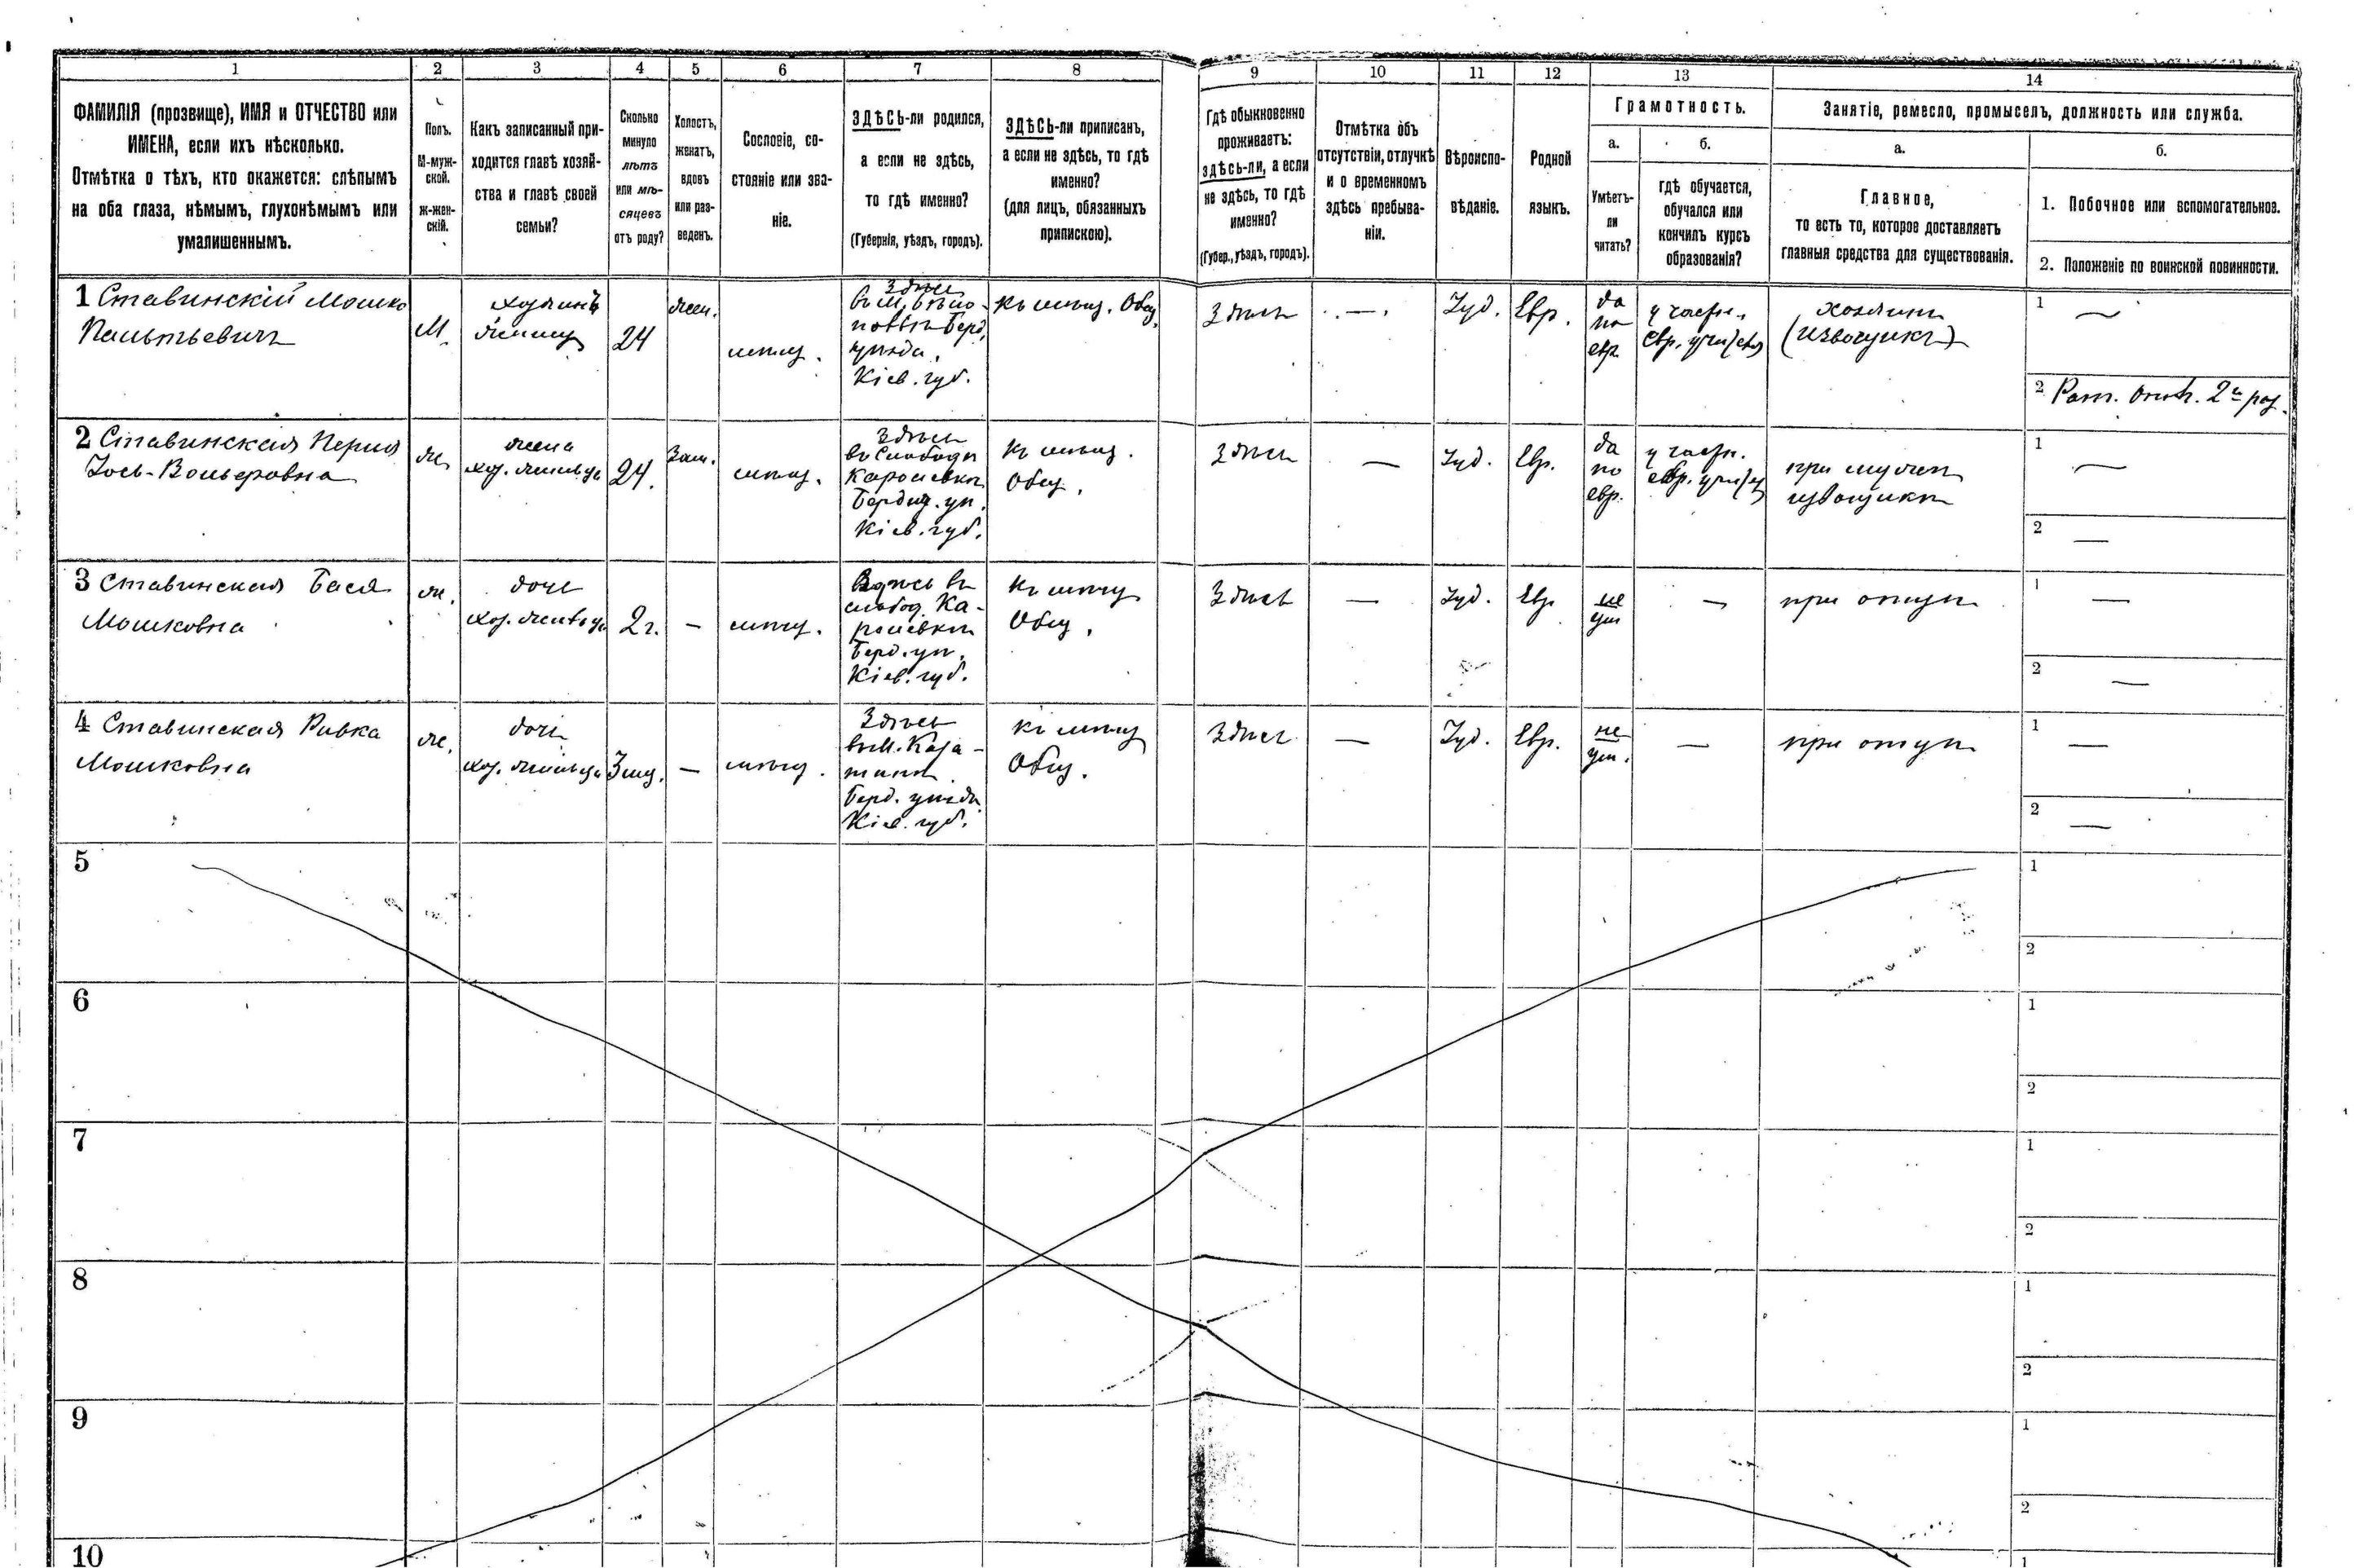 1 2 3 4 5 6 7 8 9 10 11 12 13 14
ФАМИЛІЯ (прозвище), ИМЯ и ОТЧЕСТВО или
ИМЕНА, если ихъ нѣсколько.
Отмѣтка о тѣхъ, кто окажется: слѣпымъ
на оба глаза, нѣмымъ, глухонѣмымъ или
умалишеннымъ.
Полъ.
М-муж-
ской.
ж-жен-
скій.
Какъ записанный при-
ходится главѣ хозяй-
ства и главѣ своей
семьи?
Сколько
минуло
лѣтъ
или мѣ-
сяцевъ
отъ роду?
Холостъ,
женатъ,
вдовъ
или раз-
веденъ.
Сословіе, со-
стояніе или зва-
ніе.
ЗДѢСЬ-ли родился,
а если не здѣсь,
то гдѣ именно?
(Губернія, уѣздъ, городъ).
ЗДѢСЬ-ли приписанъ,
а если не здѣсь, то гдѣ
именно?
(для лицъ, обязанныхъ
припискою).
Гдѣ обыкновенно
проживаетъ:
здѣсь-ли, а если
не здѣсь, то гдѣ
именно?
(Губер., уѣздъ, городъ).
Отмѣтка объ
отсутствіи, отлучкѣ
и о временномъ
здѣсь пребыва-
ніи.
Вѣроиспо-
вѣданіе.
Родной
языкъ.
Грамотность.
а.
Умѣетъ-
ли
читать?
б.
гдѣ обучается,
обучался или
кончилъ курсъ
образованія?
Занятіе, ремесло, промыселъ, должность или служба.
а.
Главное,
то есть то, которое доставляетъ
главныя средства для существованія.
б.
1. Побочное или вспомогательное.
2. Положеніе по воинской повинности.
1 Ставинскій Мошко
М.
24
жен.
мѣщ.
Здѣсь
Берд.
уѣзда,
Кіев. губ.
къ мѣщ. Общ.
Здѣсь
—
Іуд.
Евр.
да
по
евр.
у частн.
хозяинъ
(извощикъ)
1 —
2 Рат. опол. 2го раз.
2 Ставинская Перля
Іось-Вольфовна
ж.
жена
24.
Зам.
мѣщ.
Здѣсь
въ Слободѣ
Каролевкѣ
Бердич. уѣ.
Кіев. губ.
къ мѣщ.
Общ.
Здѣсь
—
Іуд.
Евр.
да
по
евр.
у частн.
при мужѣ
извощикѣ
1 —
2 —
3 Ставинская Бася
Мошковна
ж.
дочь
2 г.
—
мѣщ.
Здѣсь въ
слобод. Ка-
ролевкѣ
Берд. уѣ.
Кіев. губ.
къ мѣщ
Общ.
Здѣсь
—
Іуд.
Евр
не
ум
—
при отцѣ
1 —
2 —
4 Ставинская Ривка
Мошковна
ж.
дочь
3 мц.
—
мѣщ.
Здѣсь
въ М. Каза-
тинѣ
Берд. уѣзда
Кіев. губ.
къ мѣщ
Общ.
Здѣсь
—
Іуд.
Евр.
не
ум.
—
при отцѣ
1 —
2 —
5
1
2
6
1
2
7
1
2
8
1
2
9
1
2
10
1